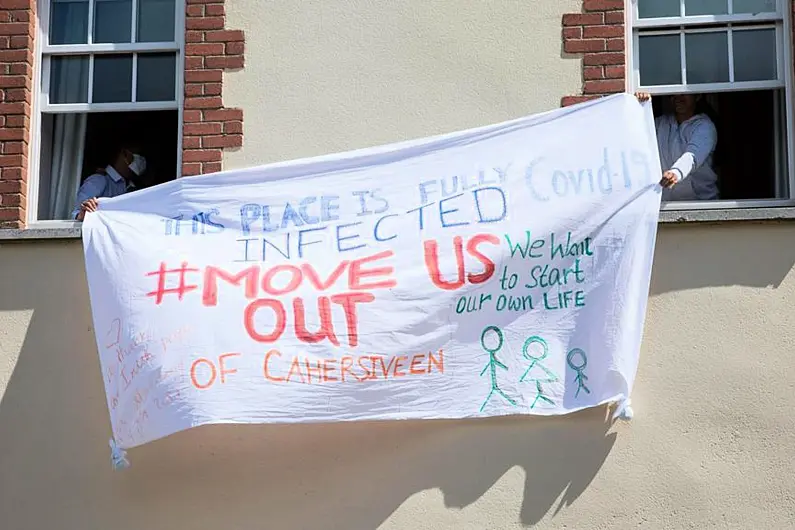 THIS PLACE IS FULLY Covid-19
INFECTED
#MOVE US
OUT
OF CAHERSIVEEN
We Want
to Start
our own LIFE